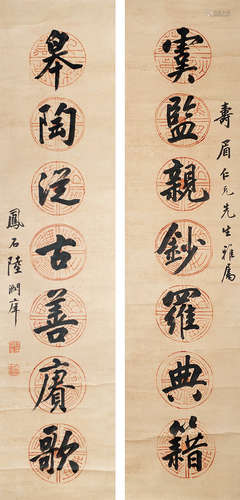 壽眉仁兄先生雅屬
虞監親鈔羅典籍
皋陶從古善賡歌
鳳石陸潤庠